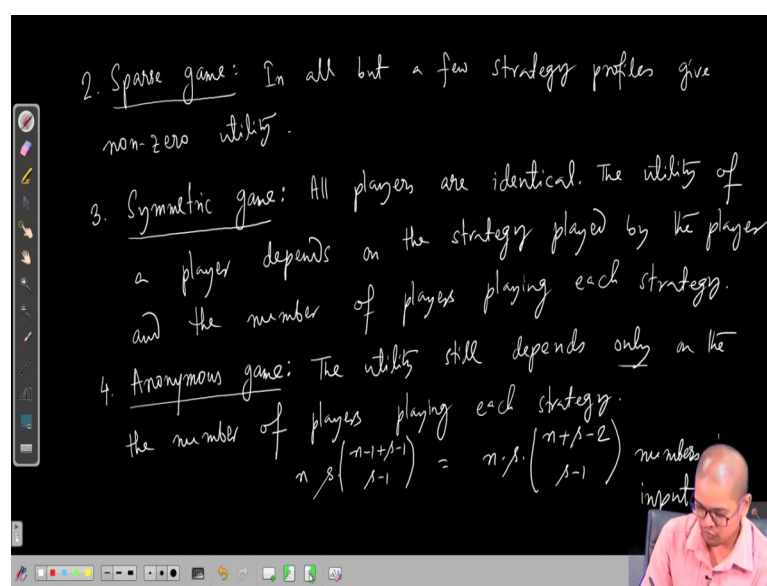 2. Sparse game: In all but a few strategy profiles give
non-zero utility.
3. Symmetric game: All players are identical. The utility of
a player depends on the strategy played by the player
and the number of players playing each strategy.
4. Anonymous game: The utility still depends only on the
the number of players playing each strategy.
n s (n-1+s-1 s-1) = n·s·(n+s-2 s-1) numbers
input